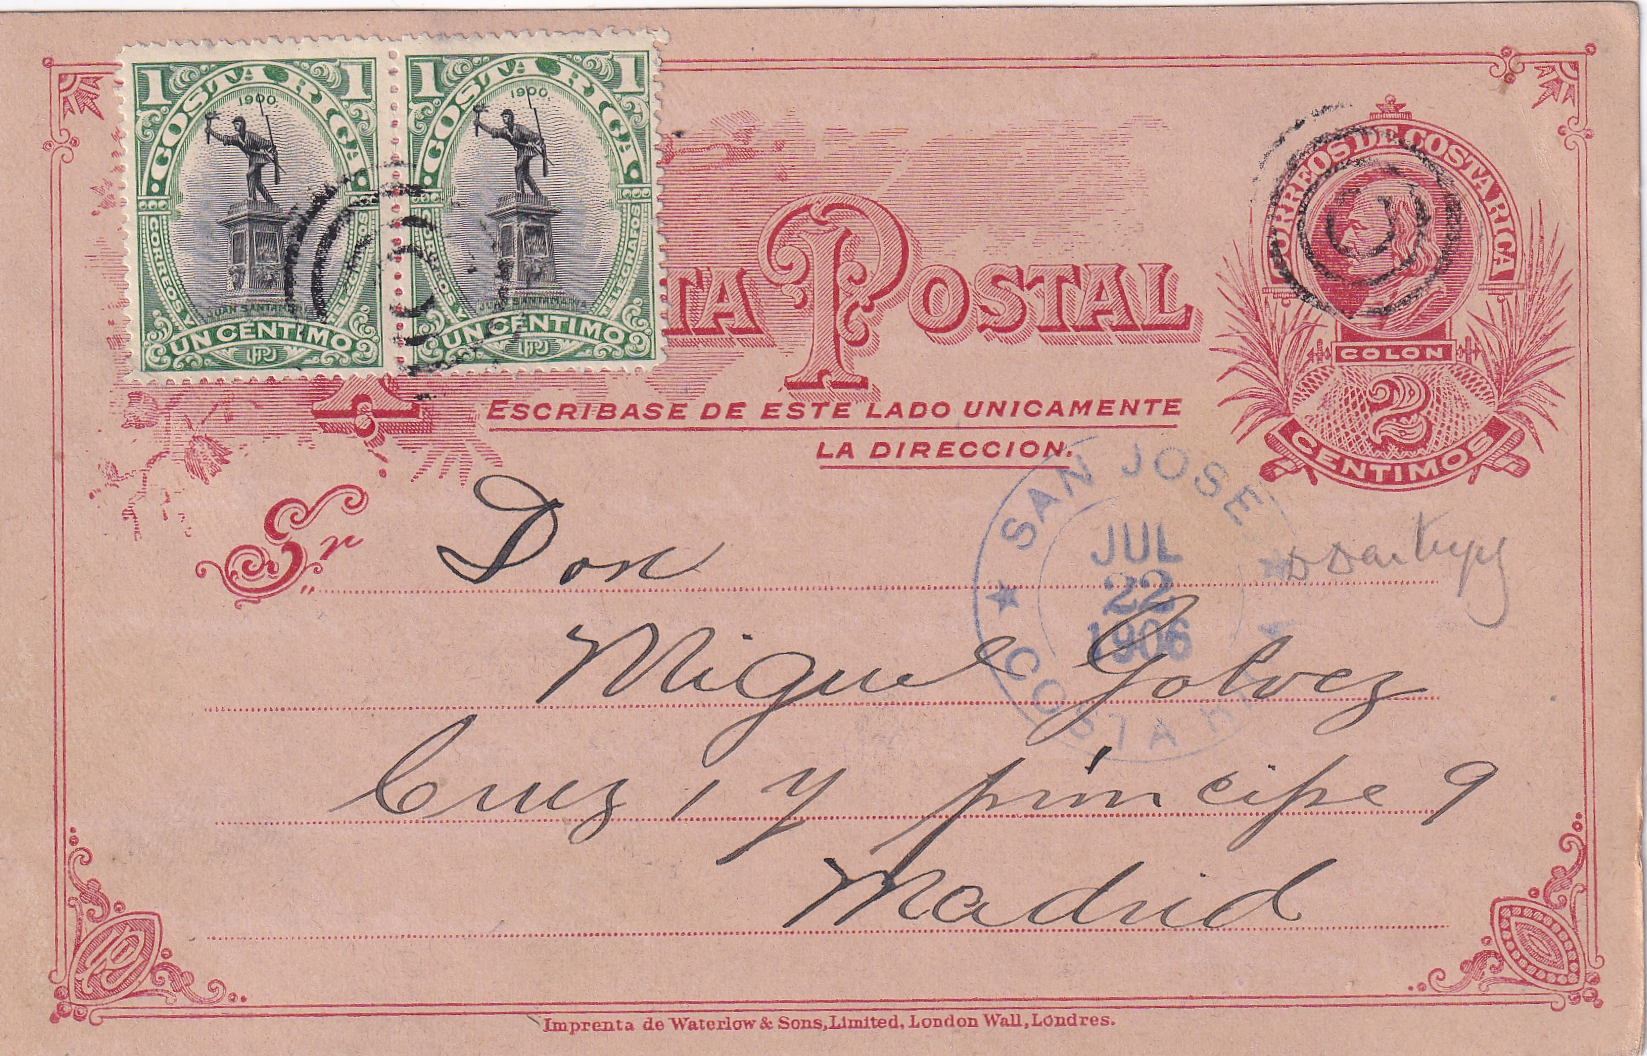 1 COSTA RICA 1
1900
CORREOS Y TELEGRAFOS
JUAN SANTAMARIA
UN CENTIMO
1 COSTA RICA 1
1900
CORREOS Y TELEGRAFOS
JUAN SANTAMARIA
UN CENTIMO
TA POSTAL
CORREOS DE COSTA RICA
COLON
2
CENTIMOS
ESCRIBASE DE ESTE LADO UNICAMENTE
LA DIRECCION.
SAN JOSE
JUL
22
1906
COSTA RICA
Sr Don
Miguel Golvez
Cruz 1 y principe 9
Madrid
Imprenta de Waterlow & Sons, Limited, London Wall, Londres.